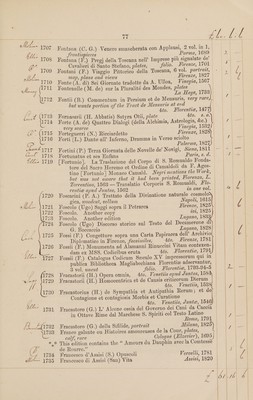 77
1707 Fontana (C. G.) Venere esacerbata con Applausi, 2 vol. in 1,
frontispieces Parma, 1689
1708 Fontana (F.) Pregj della Toscana nell' Imprese più segnalate de'
Cavalieri di Santo Stefano, plates, folio, Firenze, 1701
1709 Fontani (F.) Viaggio Pittorico della Toscana, 6 vol. portrait,
map, plans and views Firenze, 1827
1710 Fonte (A. di) Sei Giornate tradotte da A. Ulloa, Vinegia, 1567
1711 Fontenelle (M. de) sur la Pluralité des Mondes, plates
La Haye, 1733
1712 Fontii (B.) Commentum in Persium et de Mensuris, very rare,
but wants portion of the Tract de Mensuris at end
4to. Florentia, 1477
1713 Foresanii (H. Abbatis) Satyra Otii, plate 4to. s. a.
1714 Forte (A. de) Quattro Dialogi (della Alchimia, Astrologia, &c.)
very scarce Vinegia, 1532
1715 Forteguerri (N.) Ricciardetto Firenze, 1826
1716 Forti (L.) Dante all' Inferno, Dramma in Verso sciolto
Fabreano, 1827
1717 Fortini (P.) Terza Giornata delle Novelle de' Novizj, Siena, 1811
1718 Fortunatus et ses Enfans Paris, s. d.
1719 [Fortunio]. La Traslazione del Corpo di S. Romualdo Fondatore
del Sacro Heremo et Ordine di Camaldoli da F. Agostino
[Fortunio] Monaco Camald. Negri mentions the Work,
but was not aware that it had been printed, Firenze, L.
Torrentino, 1563
1720 Foscarini (F. A.) Trattato della Divinatione naturale cosmologica,
woodcut, vellum Napoli, 1615
1721 Foscolo (Ugo) Saggi sopra il Petrarca Firenze, 1825
1722 Foscolo. Another copy ivi, 1825
1723 Foscolo. Another edition Lugano, 1824
1724 Foscolo (Ugo) Discorso storico sul Testo del Decamerone di
G. Boccaccio Lugano, 1828
1725 Fossi (F.) Congetture sopra una Carta Papiracea dell' Archivio
Diplomatico in Firenze, facsimiles, 4to. Firenze, 1781
1726 Fossi (F.) Monumenta ad Alamanni Rinuccini Vitam contexendam
ex MSS. Collectina eruta 4to. Florentia, 1791
1727 Fossi (F.) Catalogus Codicum Saeculo XV impressorum qui in
publica Bibliotheca Magliabechiana Florentiae adservantur,
3 vol. uncut folio. Florentia, 1793-94-5
1728 Fracastorii (H.) Opera omnia, 4to. Venetiis apud Juntas, 1584
1729 Fracastorii (H.) Homocentrica et de Causis criticorum Dierum
4to. Venetiis, 1538
1730 Fracastorius (H.) de Sympathia et Antipathia Rerum; et de
Contagione et contagiosis Morbis et Curatione
4to. Venetiis, Junta, 1546
1731 Fracastoro (G.) L' Alcone ossia del Governo dei Cani da Caccia
in Ottave Rime dal Marchese S. Spiriti col Testo Latino
Roma, 1791
1732 Fracastoro (G.) della Sifilide, portrait Milano, 1825
1733 France galante ou Histoires amoureuses de la Cour, plates,
calf, rare Cologne (Elsevier), 1695
*** This edition contains the " Amours du Dauphin avec la Comtesse
de Roures."
1734 Francesco d'Assisi (S.) Opuscoli Vercelli, 1781
1735 Francesco di Assisi (San) Vita Assisi, 1820